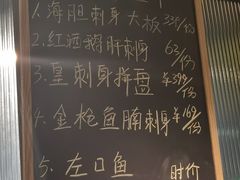 1. 海胆刺身大板 338/份
2. 红酒鹅肝刺身 63/份
3. 皇刺身拼盘 ¥399/份
4. 金枪鱼腩刺身 ¥169/份
5. 左口鱼 时价